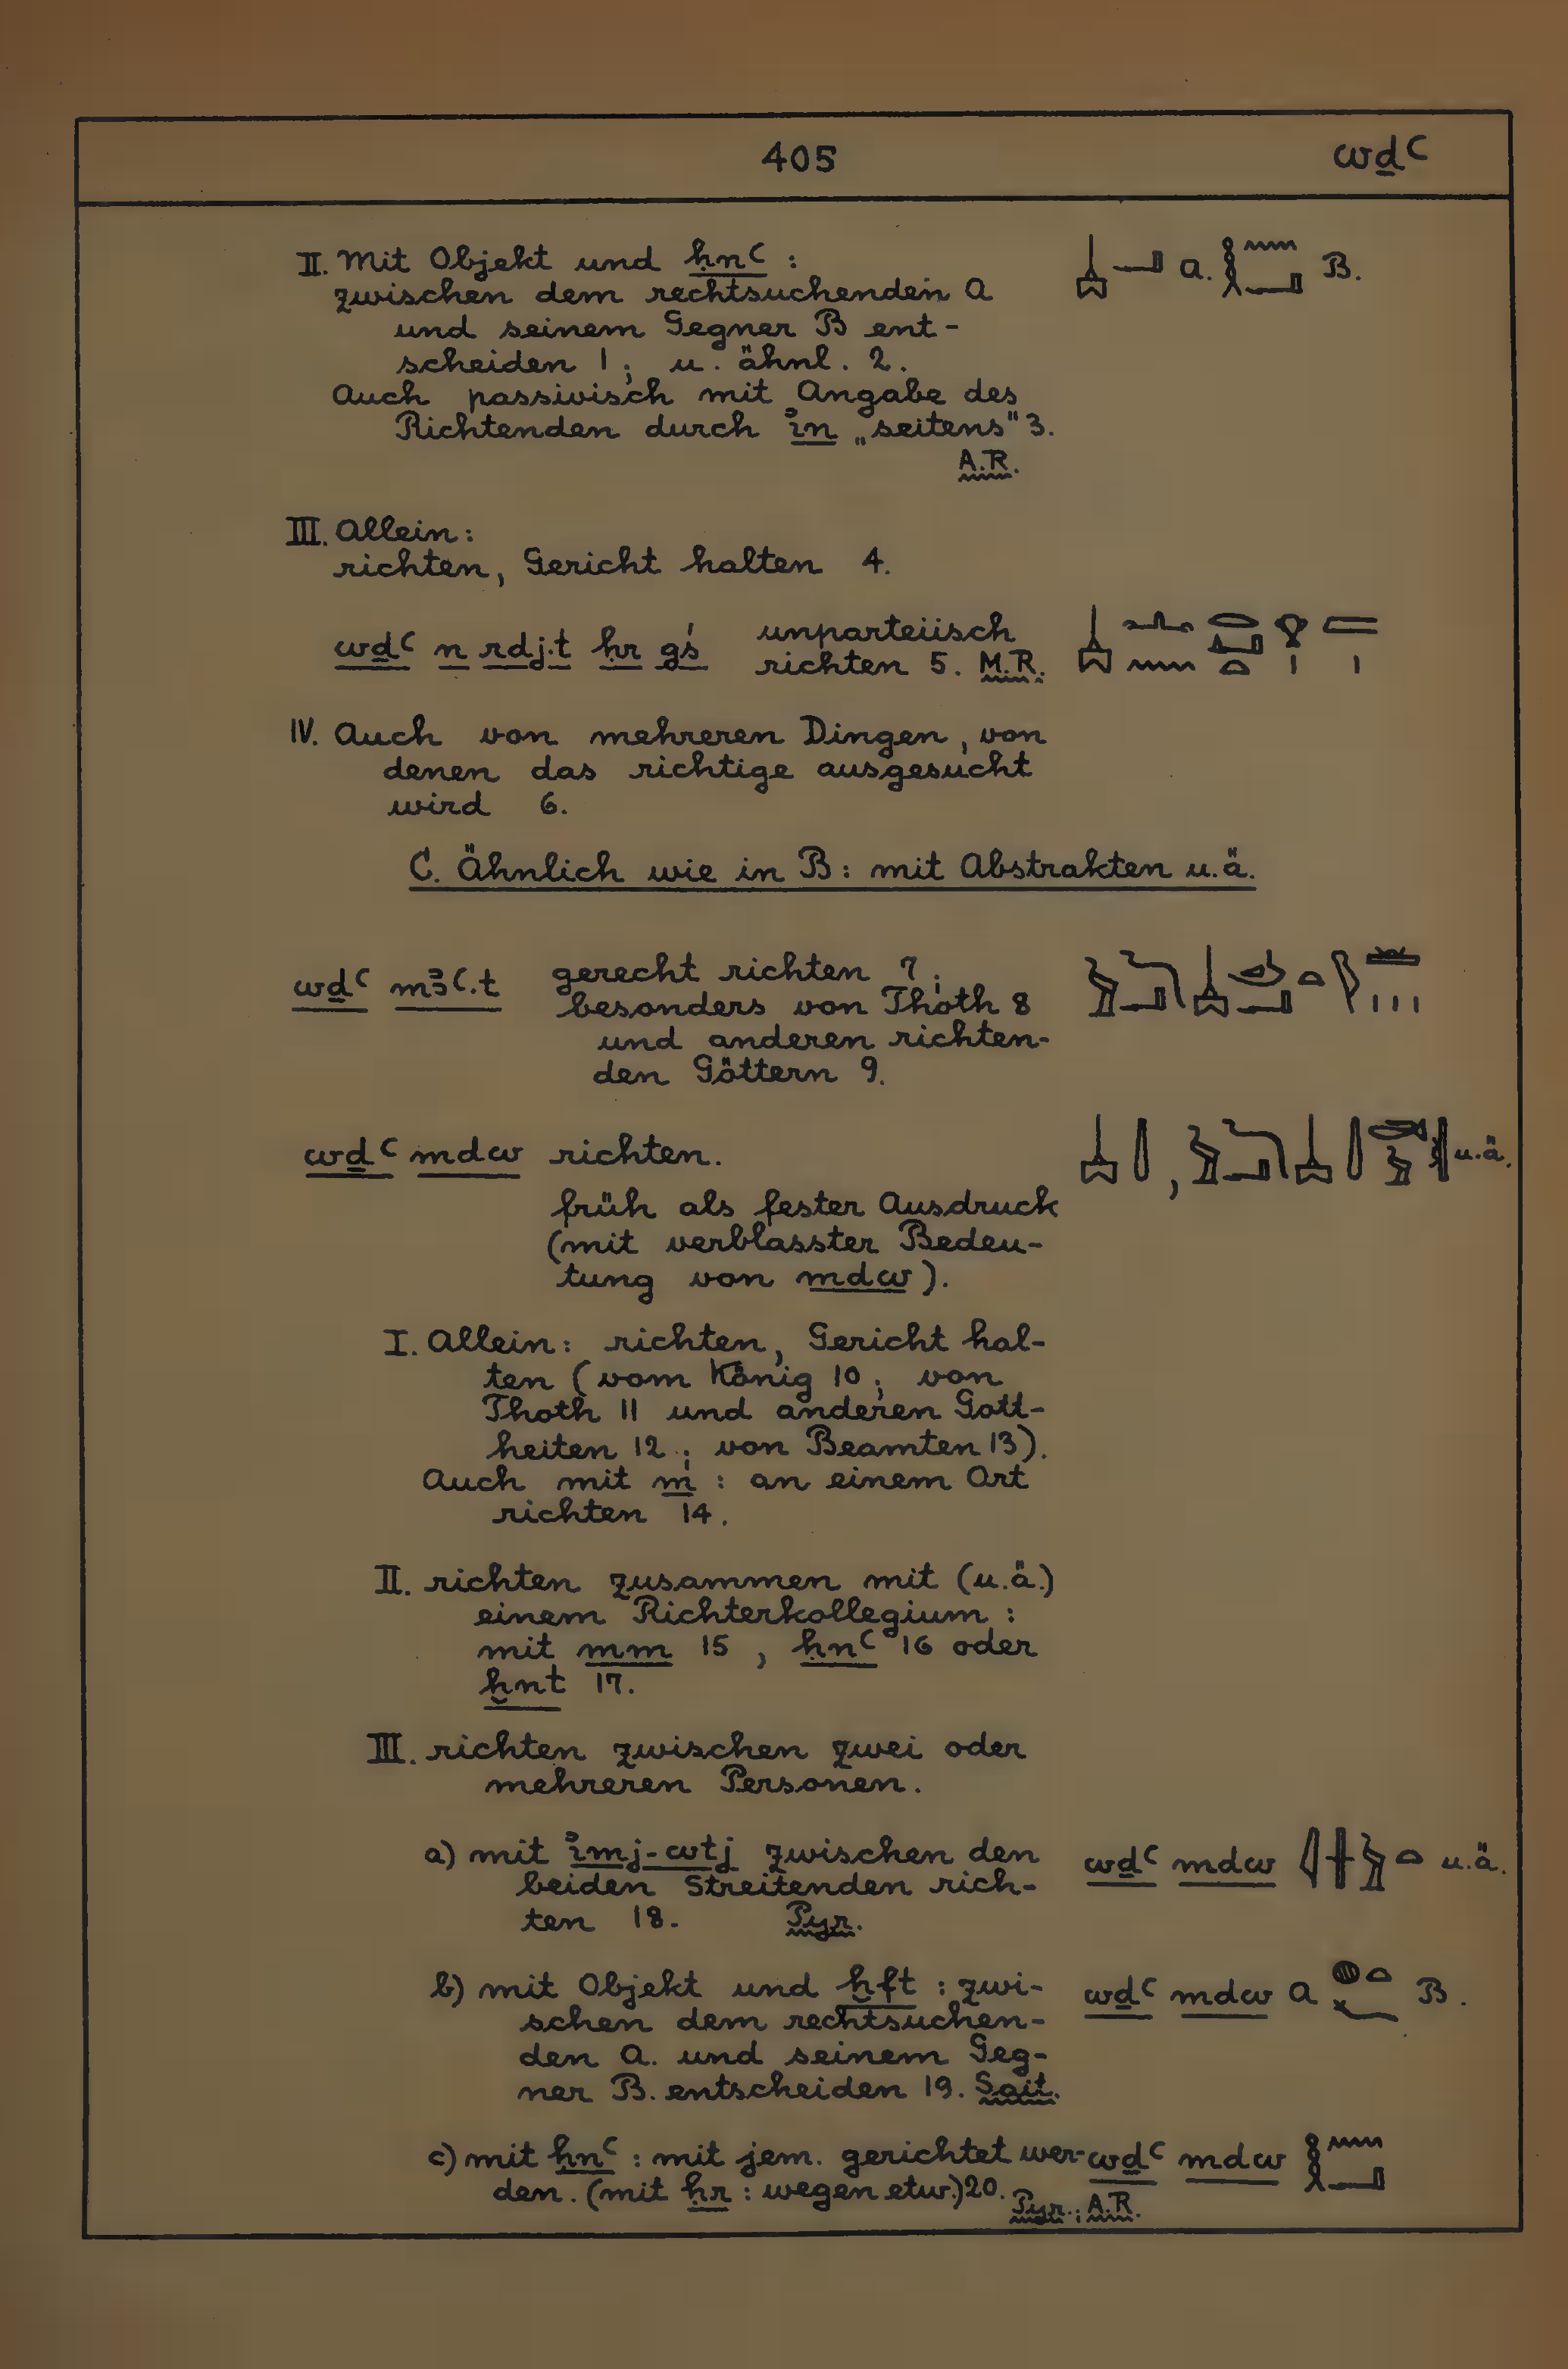 405 wḏꜥ
II. Mit Objekt und ḥnꜥ : 𓍉𓂝 A. 𓎛𓈖𓂝 B.
zwischen dem rechtsuchenden A
und seinem Gegner B ent-
scheiden 1; u. ähnl. 2.
Auch passivisch mit Angabe des
Richtenden durch i͗n „seitens" 3.
A.R.
III. Allein:
richten, Gericht halten 4.
wḏꜥ n rdj.t ḥr gś unparteiisch
richten 5. M.R.
IV. Auch von mehreren Dingen, von
denen das richtige ausgesucht
wird 6.
C. Ähnlich wie in B: mit Abstrakten u.ä.
wḏꜥ mꜣꜥ.t gerecht richten 7;
besonders von Thoth 8
und anderen richten-
den Göttern 9.
wḏꜥ mdw richten. u.ä.
früh als fester Ausdruck
(mit verblasster Bedeu-
tung von mdw).
I. Allein: richten, Gericht hal-
ten (vom König 10; von
Thoth 11 und anderen Gott-
heiten 12; von Beamten 13).
Auch mit m : an einem Ort
richten 14.
II. richten zusammen mit (u.ä.)
einem Richterkollegium :
mit mm 15, ḥnꜥ 16 oder
ḫnt 17.
III. richten zwischen zwei oder
mehreren Personen.
a) mit i͗mj-wtj zwischen den wḏꜥ mdw 𓇋𓏶𓅱𓏏 u.ä.
beiden Streitenden rich-
ten 18. Pyr.
b) mit Objekt und ḫft : zwi- wḏꜥ mdw A 𓐍𓏏𓆑 B.
schen dem rechtsuchen-
den A. und seinem Geg-
ner B. entscheiden 19. Sait.
c) mit ḥnꜥ : mit jem. gerichtet wer- wḏꜥ mdw 𓎛𓈖𓂝
den. (mit ḥr : wegen etw.) 20. Pyr.; A.R.